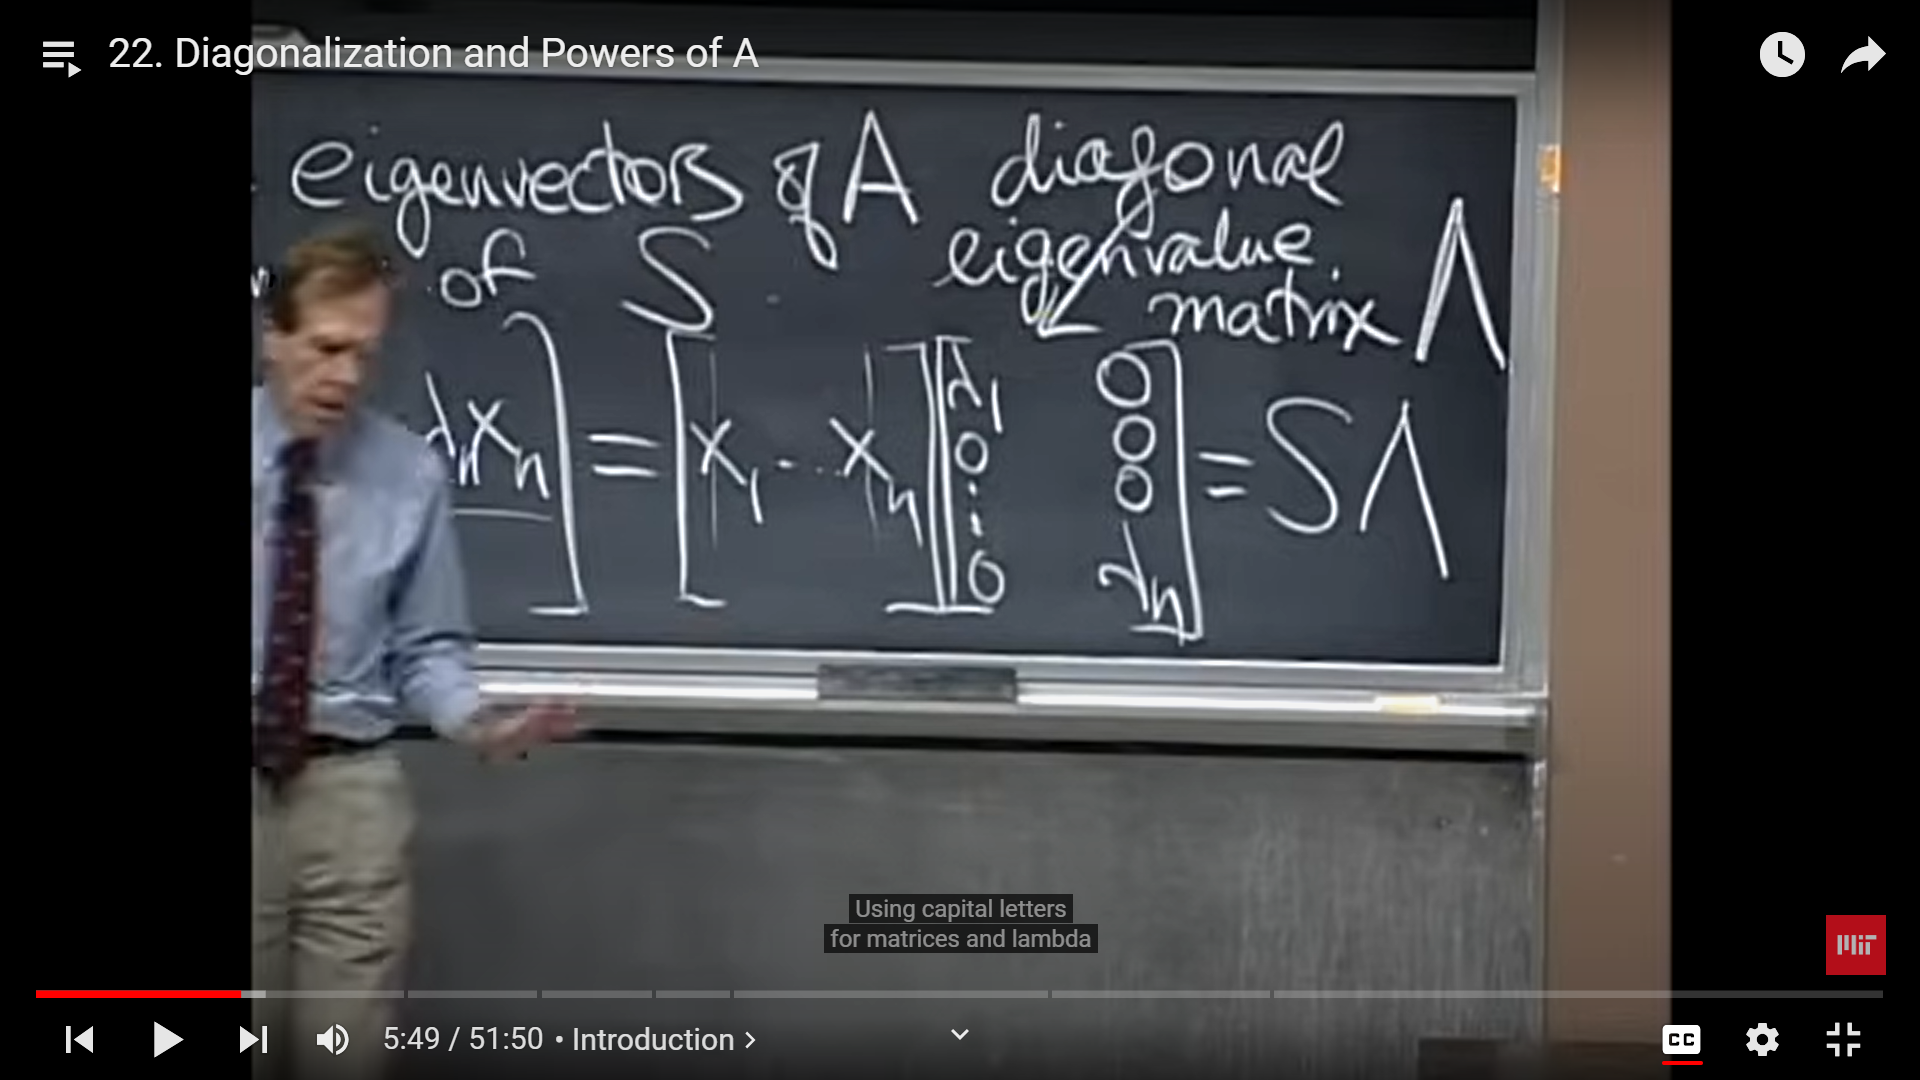 22. Diagonalization and Powers of A
eigenvectors of A
of S
diagonal
eigenvalue
matrix Λ
λₙxₙ] = [x₁ ... xₙ][λ₁ 0
0 0
⋮ 0
0 λₙ] = SΛ
Using capital letters
for matrices and lambda
MIT
5:49 / 51:50 • Introduction >
CC